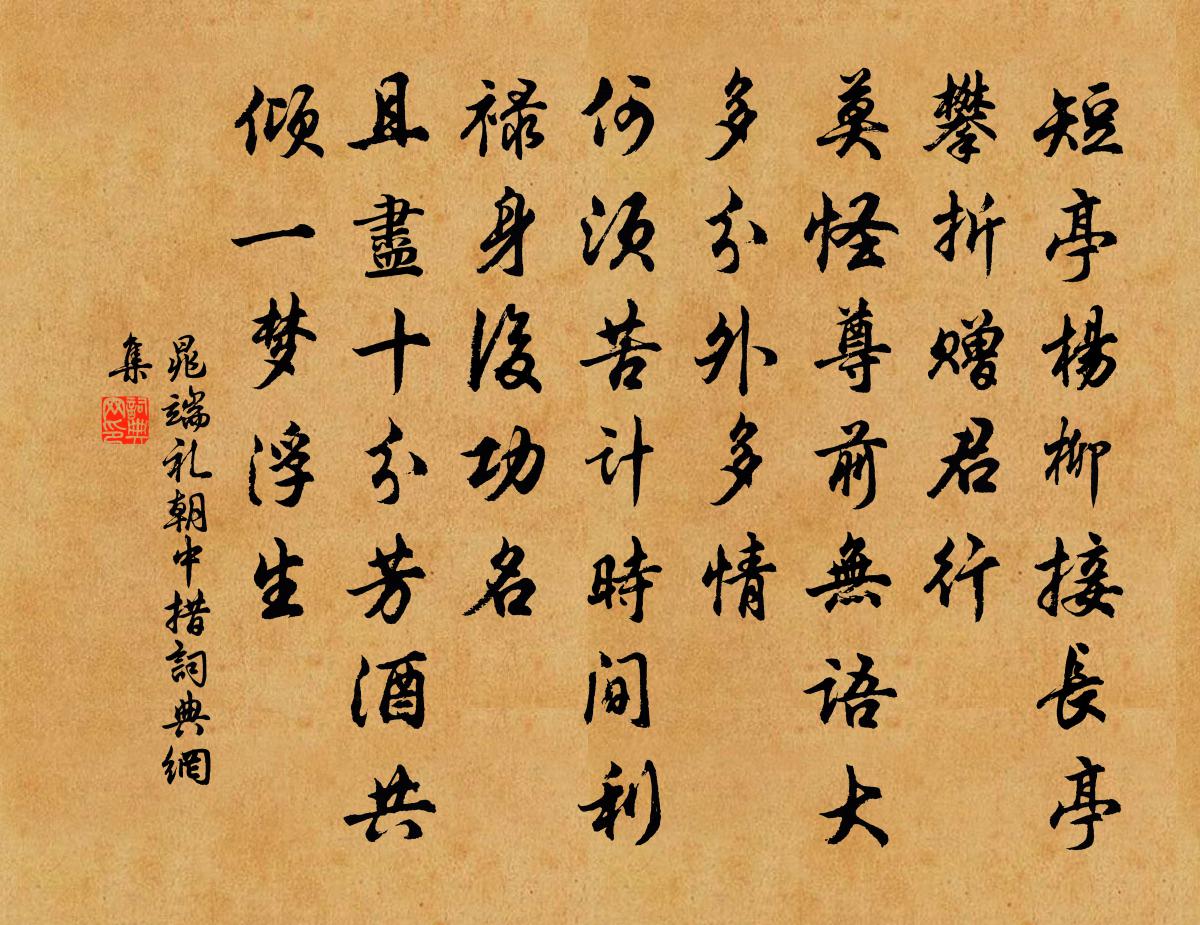 短亭楊柳接長亭
攀折贈君行
莫怪尊前無語大
多分外多情
何須苦計時間利
祿身後功名
且盡十分芳酒共
傾一梦浮生
晁端礼朝中措詞典網
集
詞典網印